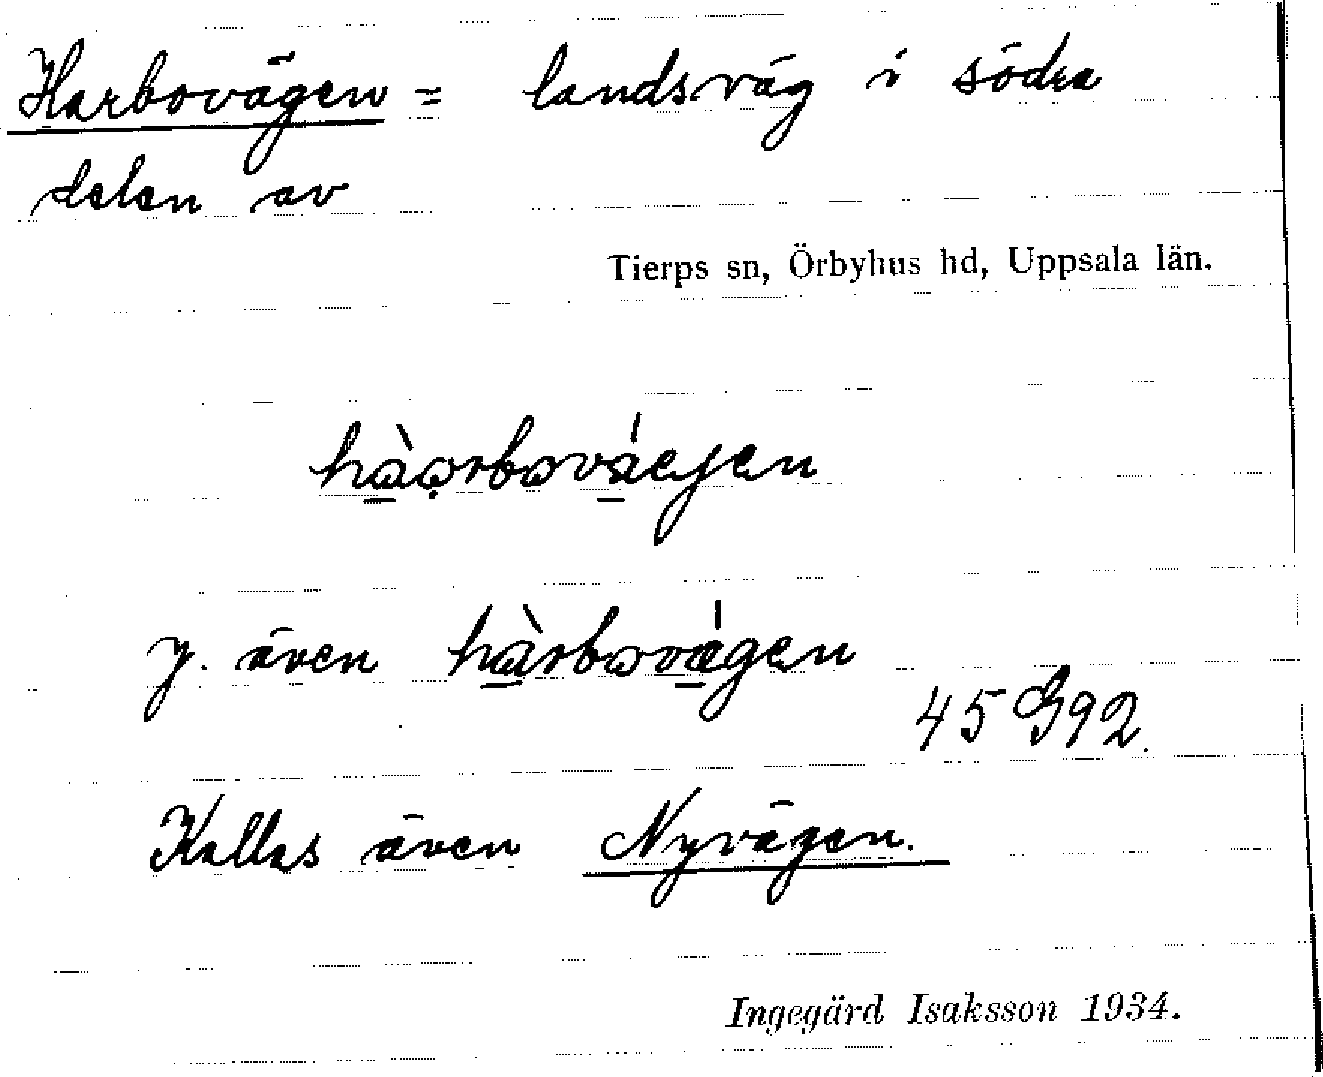 Harbovägen = landsväg i södra
delen av
Tierps sn, Örbyhus hd, Uppsala län.
hàǫrbovȧejen
y. även hàrbovǽgen
45 G92.
Kallas även Nyvägen.
Ingegärd Isaksson 1934.